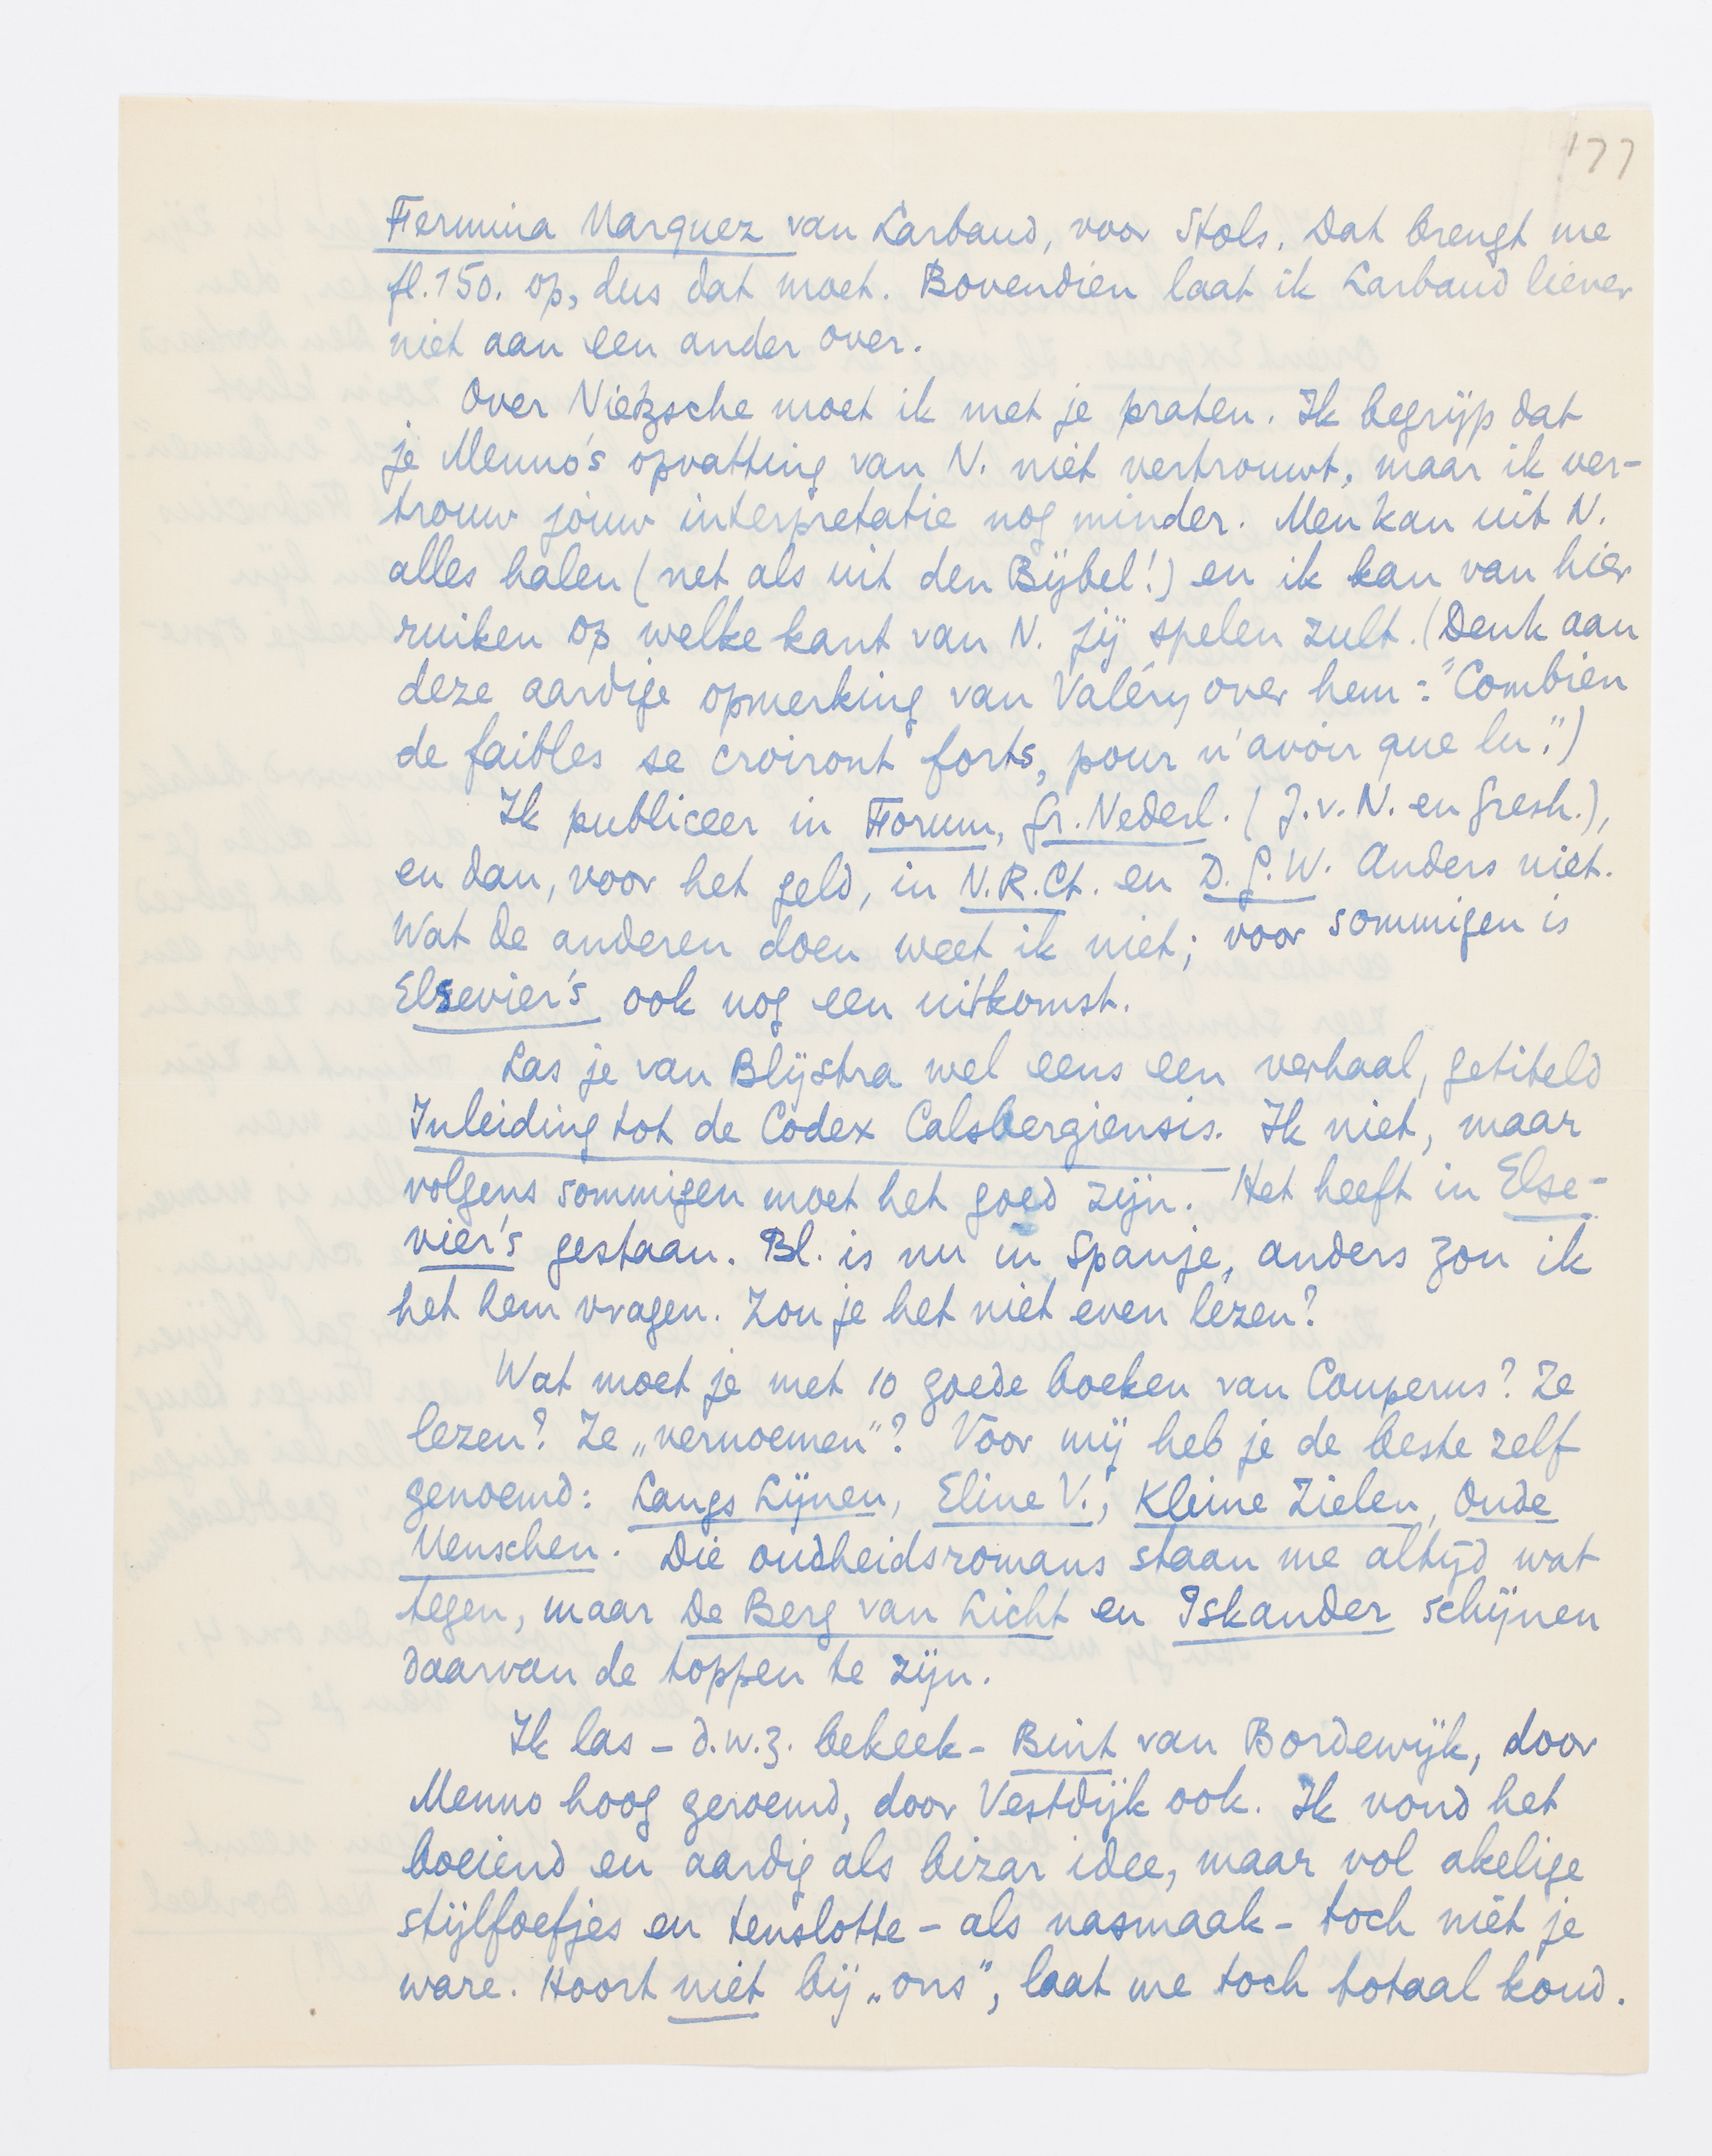 177
Fermina Marquez van Larbaud, voor Stols. Dat brengt me
fl. 150. op, dus dat moet. Bovendien laat ik Larbaud liever
niet aan een ander over.
Over Nietzsche moet ik met je praten. Ik begrijp dat
je Menno's opvatting van N. niet vertrouwt, maar ik ver-
trouw jouw interpretatie nog minder. Men kan uit N.
alles halen (net als uit den Bijbel!) en ik kan van hier
ruiken op welke kant van N. jij spelen zult. (Denk aan
deze aardige opmerking van Valéry over hem: "Combien
de faibles se croiront forts, pour n'avoir que lu.")
Ik publiceer in Forum, Gr. Nederl. (J.v.N. en Gresh.),
en dan, voor het geld, in N.R.Ct. en D.G.W. Anders niet.
Wat de anderen doen weet ik niet; voor sommigen is
Elsevier's ook nog een uitkomst.
Las je van Blijstra wel eens een verhaal, getiteld
Inleiding tot de Codex Calsbergiensis. Ik niet, maar
volgens sommigen moet het goed zijn. Het heeft in Else-
vier's gestaan. Bl. is nu in Spanje, anders zou ik
het hem vragen. Zou je het niet even lezen?
Wat moet je met 10 goede boeken van Couperus? Ze
lezen? Ze „vernoemen"? Voor mij heb je de beste zelf
genoemd: Langs Lijnen, Eline V., Kleine Zielen, Oude
Menschen. Die oudheidsromans staan me altijd wat
tegen, maar De Berg van Licht en Iskander schijnen
daarvan de toppen te zijn.
Ik las – d.w.z. bekeek – Bint van Bordewijk, door
Menno hoog geroemd, door Vestdijk ook. Ik vond het
boeiend en aardig als bizar idee, maar vol akelige
stijlfoefjes en tenslotte – als nasmaak – toch niet je
ware. Hoort niet bij „ons", laat me toch totaal koud.